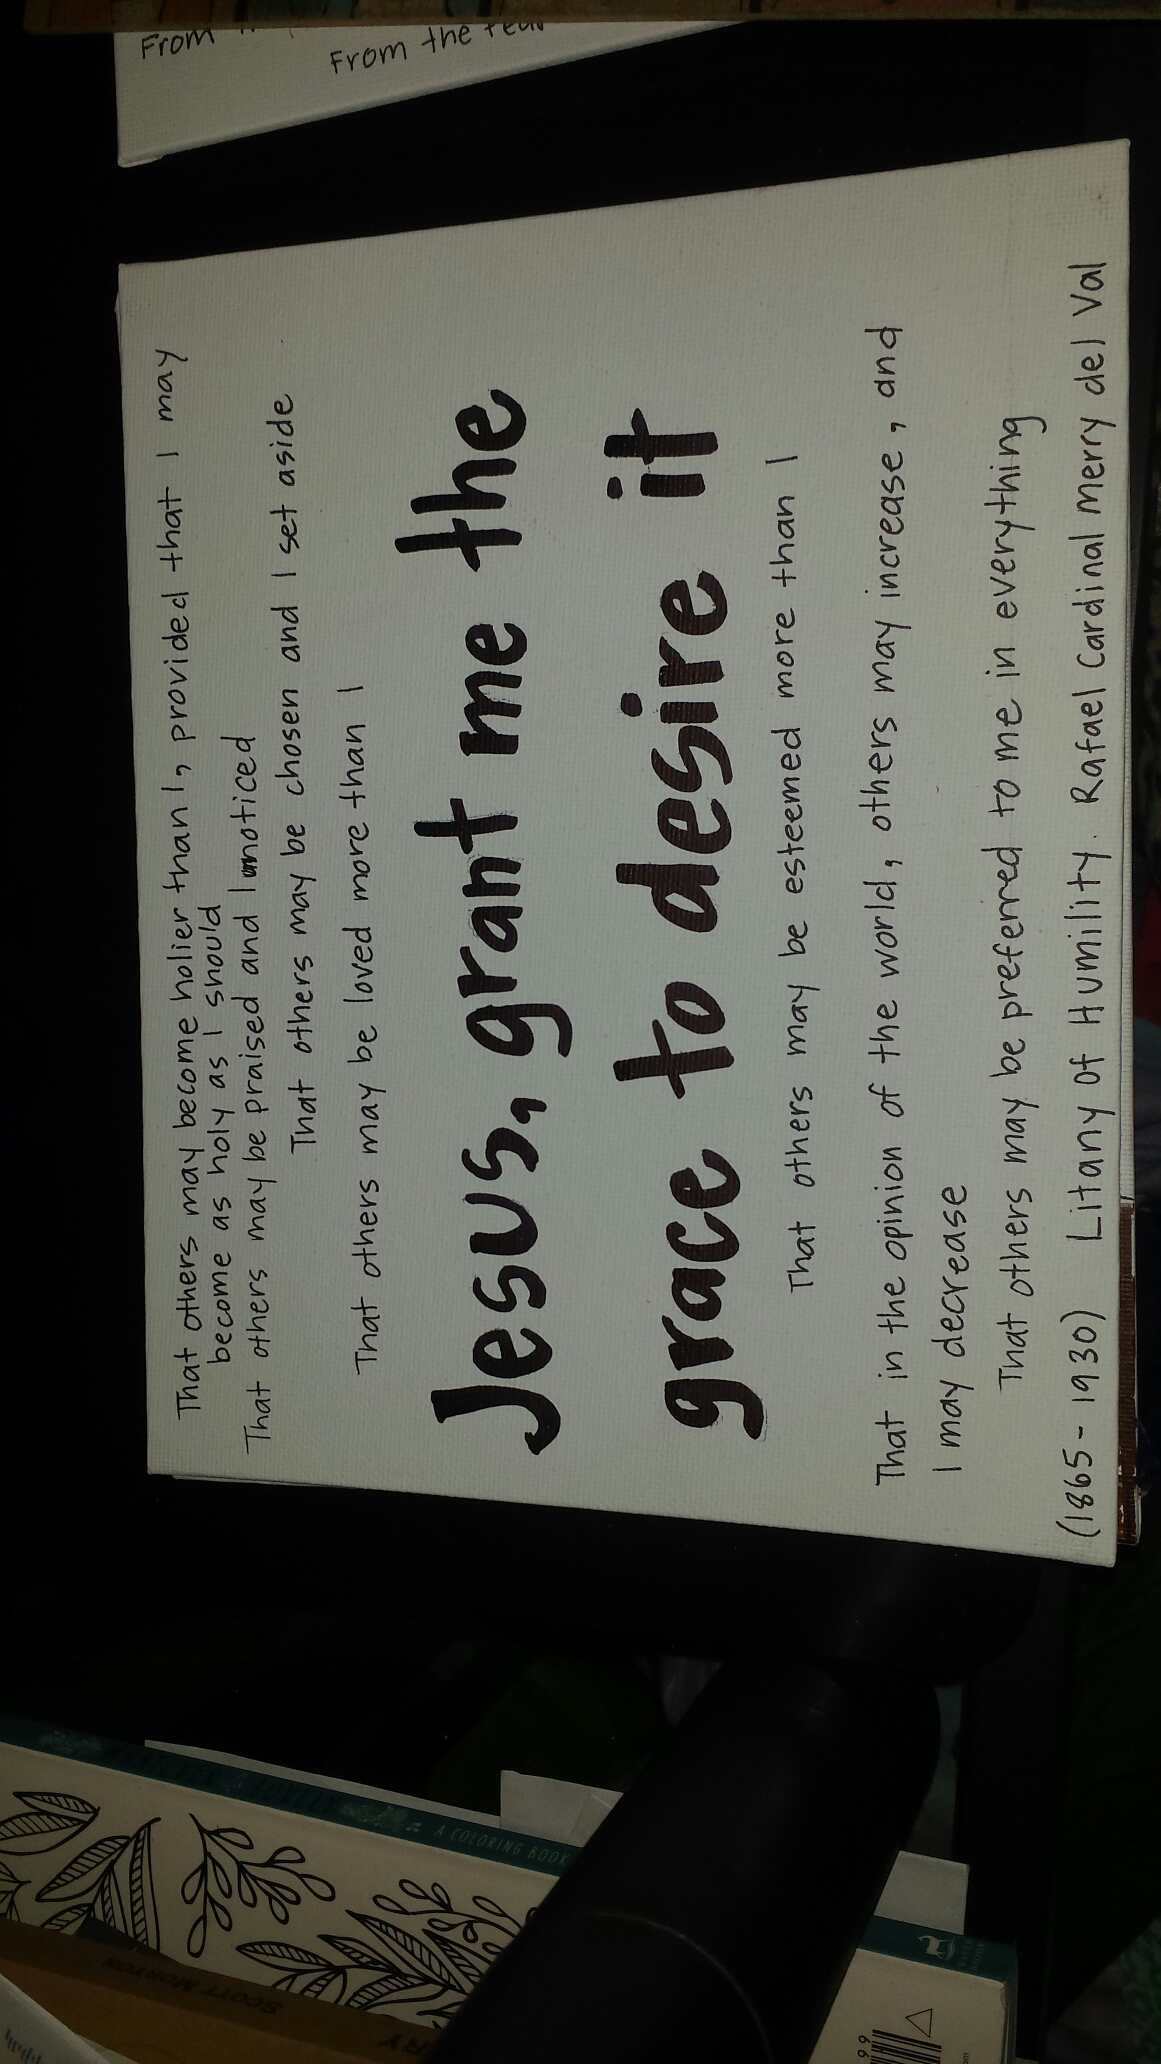 From
From the
That others may become holier than I, provided that I may
become as holy as I should
That others may be praised and I unnoticed
That others may be chosen and I set aside
That others may be loved more than I
Jesus, grant me the
grace to desire it
That others may be esteemed more than I
That in the opinion of the world, others may increase, and
I may decrease
That others may be preferred to me in everything
(1865-1930) Litany of Humility. Rafael Cardinal merry del Val
WHATEVER IS LOVELY A COLORING BOOK
SCOTT MORTON